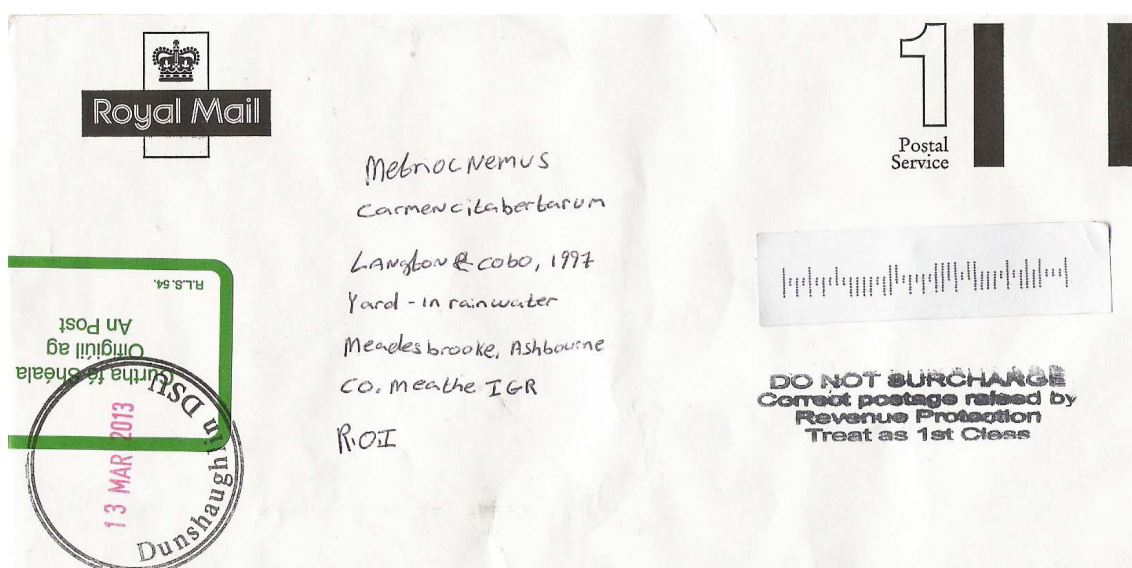 Royal Mail
1
Postal
Service
Metriocnemus
carmencitabertarum
Langton & cobo, 1997
Yard - In rainwater
Meadesbrooke, Ashbourne
CO. Meathe IGR
R.O.I
R.L.S. 54.
Curtha fá Shéala
Oifigiúil ag
An Post
Dunshaughlin DSU
13 MAR 2013
DO NOT SURCHARGE
Correct postage raised by
Revenue Protection
Treat as 1st Class